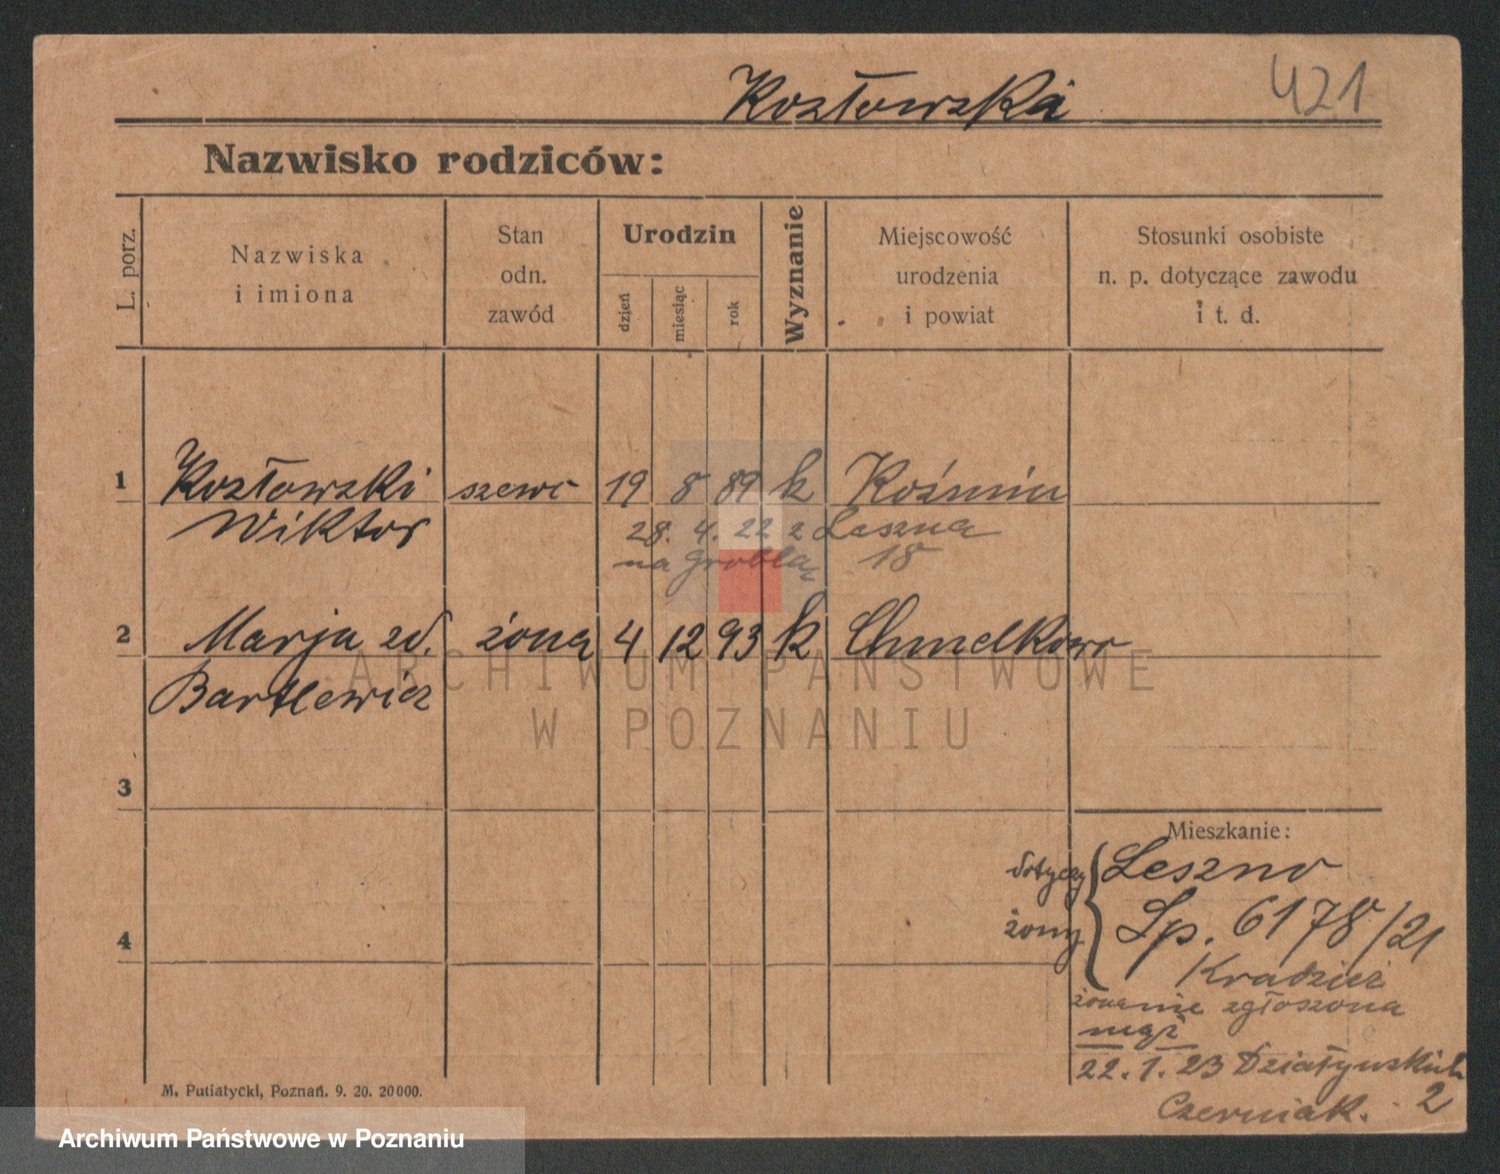 Kozłowski 421
Nazwisko rodziców:
L. porz.
Nazwiska
i imiona
Stan
odn.
zawód
Urodzin
dzień
miesiąc
rok
Wyznanie
Miejscowość
urodzenia
i powiat
Stosunki osobiste
n. p. dotyczące zawodu
i t. d.
1 Kozłowski szewc 19 8 89 k Koźmin
Wiktor
28. 4. 22 z Leszna
na Groblą 18
2 Marja zd. żona 4 12 93 k Chmelkowo
Bartlewicz
ARCHIWUM PAŃSTWOWE
W POZNANIU
3
Mieszkanie:
dotyczy
żony
Leszno
Sp. 6178/21
4
Kradzież
żona nie zgłoszona
mąż
22. 1. 23 Działyńskich
2
Czerniak.
M. Putiatycki, Poznań. 9. 20. 20000.
Archiwum Państwowe w Poznaniu